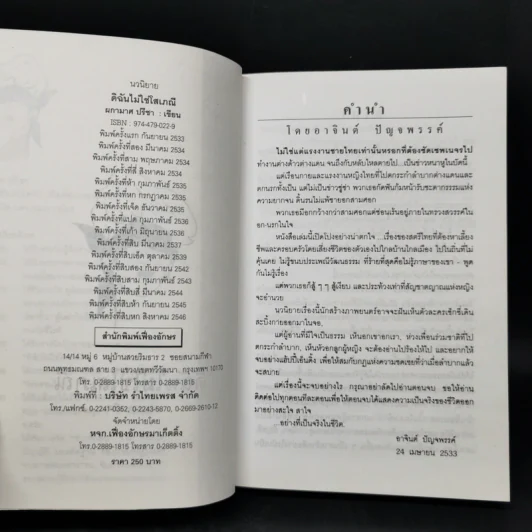 นวนิยาย
ดิฉันไม่ใช่โสเภณี
ผกามาศ ปรีชา : เขียน
ISBN : 974-479-022-9
พิมพ์ครั้งแรก กันยายน 2533
พิมพ์ครั้งที่สอง มีนาคม 2534
พิมพ์ครั้งที่สาม พฤษภาคม 2534
พิมพ์ครั้งที่สี่ สิงหาคม 2534
พิมพ์ครั้งที่ห้า กุมภาพันธ์ 2535
พิมพ์ครั้งที่หก กรกฎาคม 2535
พิมพ์ครั้งที่เจ็ด ธันวาคม 2535
พิมพ์ครั้งที่แปด กุมภาพันธ์ 2536
พิมพ์ครั้งที่เก้า มิถุนายน 2536
พิมพ์ครั้งที่สิบ มีนาคม 2537
พิมพ์ครั้งที่สิบเอ็ด ตุลาคม 2538
พิมพ์ครั้งที่สิบสอง กันยายน 2542
พิมพ์ครั้งที่สิบสาม กุมภาพันธ์ 2543
พิมพ์ครั้งที่สิบสี่ มีนาคม 2544
พิมพ์ครั้งที่สิบห้า กันยายน 2545
พิมพ์ครั้งที่สิบหก สิงหาคม 2546
สำนักพิมพ์เฟื่องอักษร
14/14 หมู่ 6 หมู่บ้านสวยริมธาร 2 ซอยสนามกีฬา
ถนนพุทธมณฑล สาย 3 แขวง/เขตทวีวัฒนา กรุงเทพฯ 10170
โทร. 0-2889-1815 โทรสาร 0-2889-1815
พิมพ์ที่ : บริษัท รำไทยเพรส จำกัด
โทร./แฟกซ์. 0-2241-0362, 0-2243-6870, 0-2669-3610-12
จัดจำหน่ายโดย
หจก.เฟื่องอักษรมาเก็ตติ้ง
โทร. 0-2889-1815 โทรสาร 0-2889-1815
ราคา 250 บาท
คำนำ
โดยอาจินต์ ปัญจพรรค์
ไม่ใช่แต่แรงงานชายไทยเท่านั้นหรอกที่ต้องซัดเซพเนจรไป
ทำงานต่างด้าวต่างแดน จนถึงกับหลับไหลตายไป...เป็นข่าวหนาหูในบัดนี้
แต่เรือนกายและแรงงานหญิงไทยที่ไปตกระกำลำบากต่างแดนและ
ตกนรกทั้งเป็น แต่ไม่เป็นข่าวซู่ซ่า พวกเธอกัดฟันก้มหน้ารับชะตากรรมแห่ง
ความยากจน ดิ้นรนไม่แพ้ชายอกสามศอก
พวกเธอมีอกกว้างกว่าสามศอกแต่ซ่อนเร้นอยู่ภายในทรวงสวรรค์ใน
อก-นรกในใจ
หนังสือเล่มนี้เปิดโปงอย่างน่าตกใจ ...เรื่องของสตรีไทยที่ต้องหาเลี้ยง
ชีพและครอบครัวโดยเสี่ยงชีวิตของตัวเองไปไกลบ้านไกลเมือง ไปในถิ่นที่ไม่
คุ้นเคย ไม่รู้ขนบประเพณีวัฒนธรรม ที่ร้ายที่สุดคือไม่รู้ภาษาของเขา - พูด
กันไม่รู้เรื่อง
แต่พวกเธอก็สู้ ๆ ๆ สู้เงียบ และประท้วงเท่าที่สัญชาตญาณแห่งหญิง
จะอำนวย
นวนิยายเรื่องนี้นักสร้างภาพยนตร์อาจจะฝันเห็นตัวละครเซ็กซี่เดิน
สะบึ้งกายออกมาในจอ.
แต่ผู้อ่านที่มีใจเป็นธรรม เห็นอกเขาอกเรา, ห่วงเพื่อนร่วมชาติที่ไป
ตกระกำลำบาก, เห็นหัวอกลูกผู้หญิง จะต้องอ่านไปร้องไห้ไป และอยากให้
จบอย่างแฮ็ปปี้เอ็นดิ้ง เพื่อให้สมกับกฎแห่งความชดเชยที่ว่าเมื่อลำบากแล้ว
สบาย
แต่เรื่องนี้จะจบอย่างไร กรุณาอย่าลัดไปอ่านตอนจบ ขอให้อ่าน
ติดต่อไปทุกตอนทีละตอนเพื่อให้ตอนจบได้แสดงความเป็นจริงของชีวิตออก
มาอย่างสะใจ สาใจ
อย่างที่เป็นจริงในชีวิต.
อาจินต์ ปัญจพรรค์
24 เมษายน 2533